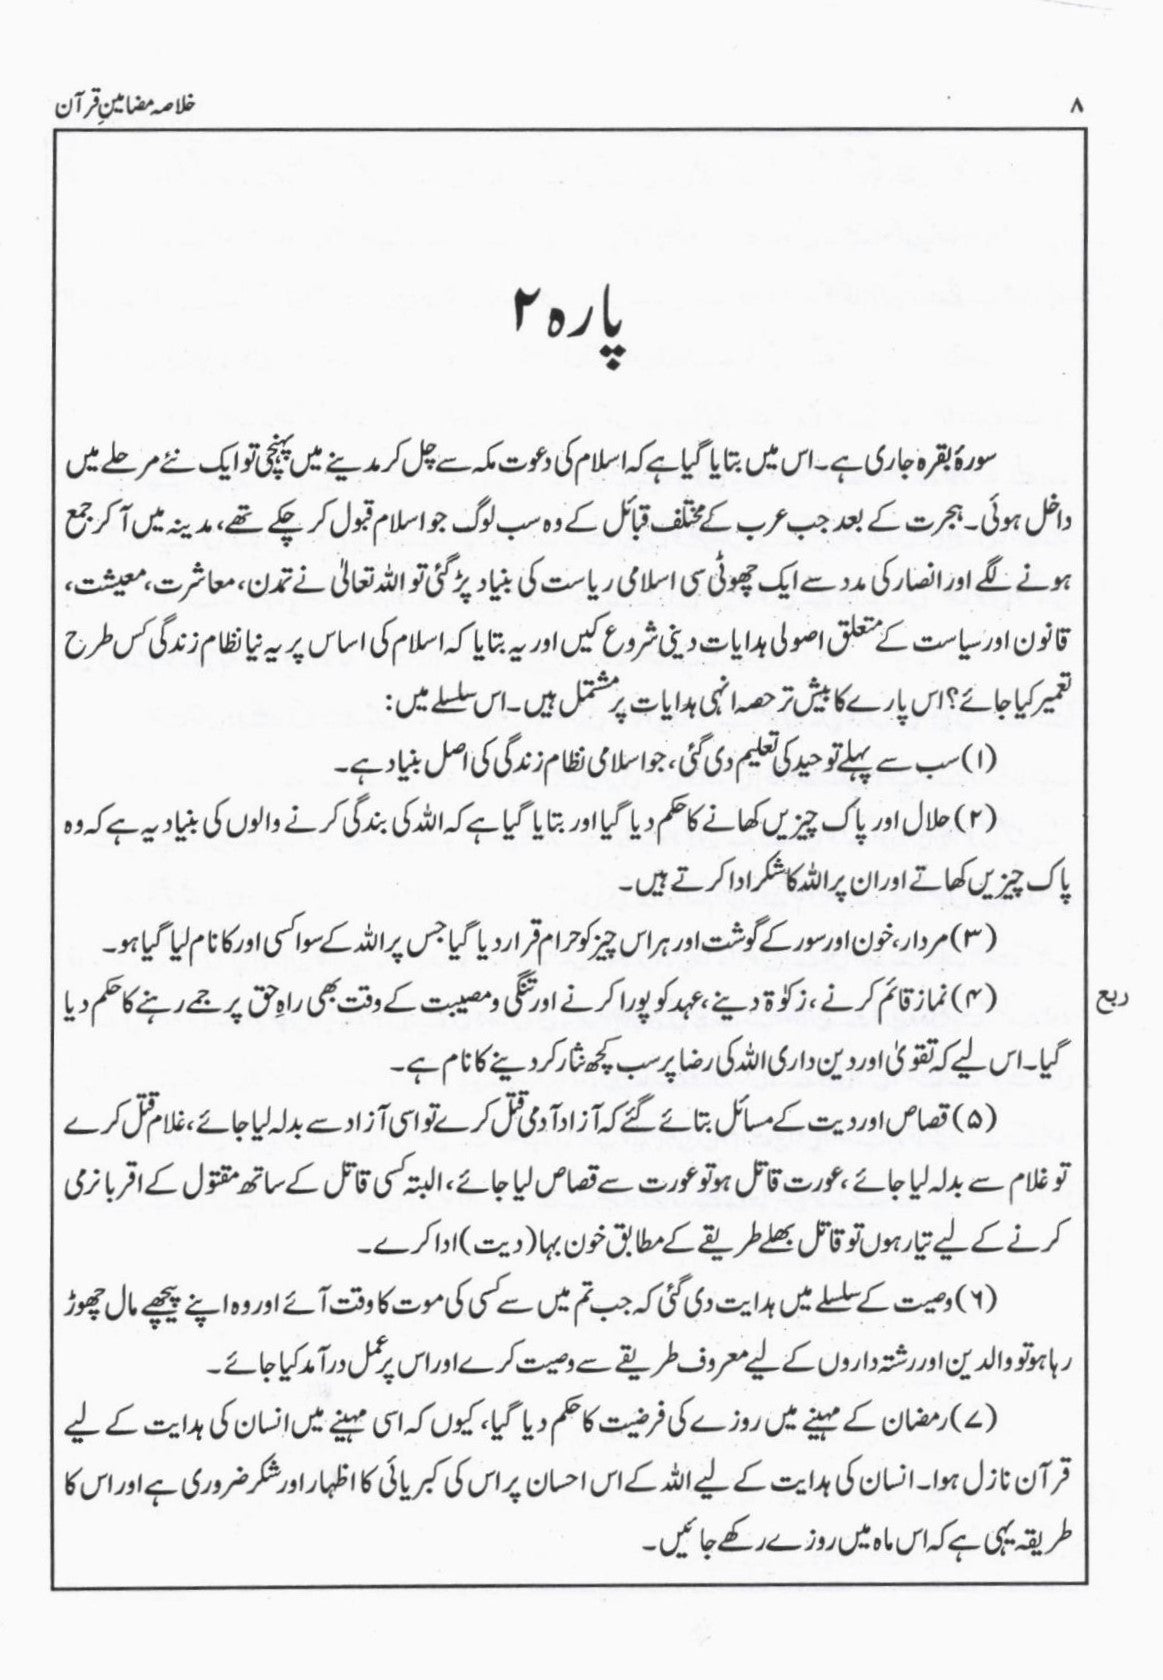 ۸
خلاصہ مضامینِ قرآن
پارہ ۲
سورۂ بقرہ جاری ہے۔ اس میں بتایا گیا ہے کہ اسلام کی دعوت مکہ سے چل کر مدینے میں پہنچی تو ایک نئے مرحلے میں
داخل ہوئی۔ ہجرت کے بعد جب عرب کے مختلف قبائل کے وہ سب لوگ جو اسلام قبول کر چکے تھے، مدینہ میں آ کر جمع
ہونے لگے اور انصار کی مدد سے ایک چھوٹی سی اسلامی ریاست کی بنیاد پڑ گئی تو اللہ تعالیٰ نے تمدن، معاشرت، معیشت،
قانون اور سیاست کے متعلق اصولی ہدایات دینی شروع کیں اور یہ بتایا کہ اسلام کی اساس پر یہ نیا نظام زندگی کس طرح
تعمیر کیا جائے؟ اس پارے کا بیش تر حصہ انہی ہدایات پر مشتمل ہیں۔ اس سلسلے میں:
(۱) سب سے پہلے توحید کی تعلیم دی گئی، جو اسلامی نظام زندگی کی اصل بنیاد ہے۔
(۲) حلال اور پاک چیزیں کھانے کا حکم دیا گیا اور بتایا گیا ہے کہ اللہ کی بندگی کرنے والوں کی بنیاد یہ ہے کہ وہ
پاک چیزیں کھاتے اور ان پر اللہ کا شکر ادا کرتے ہیں۔
(۳) مردار، خون اور سور کے گوشت اور ہر اس چیز کو حرام قرار دیا گیا جس پر اللہ کے سوا کسی اور کا نام لیا گیا ہو۔
ربع
(۴) نماز قائم کرنے، زکوٰۃ دینے، عہد کو پورا کرنے اور تنگی و مصیبت کے وقت بھی راہِ حق پر جمے رہنے کا حکم دیا
گیا۔ اس لیے کہ تقویٰ اور دین داری اللہ کی رضا پر سب کچھ نثار کر دینے کا نام ہے۔
(۵) قصاص اور دیت کے مسائل بتائے گئے کہ آزاد آدمی قتل کرے تو اسی آزاد سے بدلہ لیا جائے، غلام قتل کرے
تو غلام سے بدلہ لیا جائے، عورت قاتل ہو تو عورت سے قصاص لیا جائے، البتہ کسی قاتل کے ساتھ مقتول کے اقربا نرمی
کرنے کے لیے تیار ہوں تو قاتل بھلے طریقے کے مطابق خون بہا (دیت) ادا کرے۔
(۶) وصیت کے سلسلے میں ہدایت دی گئی کہ جب تم میں سے کسی کی موت کا وقت آئے اور وہ اپنے پیچھے مال چھوڑ
رہا ہو تو والدین اور رشتہ داروں کے لیے معروف طریقے سے وصیت کرے اور اس پر عمل درآمد کیا جائے۔
(۷) رمضان کے مہینے میں روزے کی فرضیت کا حکم دیا گیا، کیوں کہ اسی مہینے میں انسان کی ہدایت کے لیے
قرآن نازل ہوا۔ انسان کی ہدایت کے لیے اللہ کے اس احسان پر اس کی کبریائی کا اظہار اور شکر ضروری ہے اور اس کا
طریقہ یہی ہے کہ اس ماہ میں روزے رکھے جائیں۔